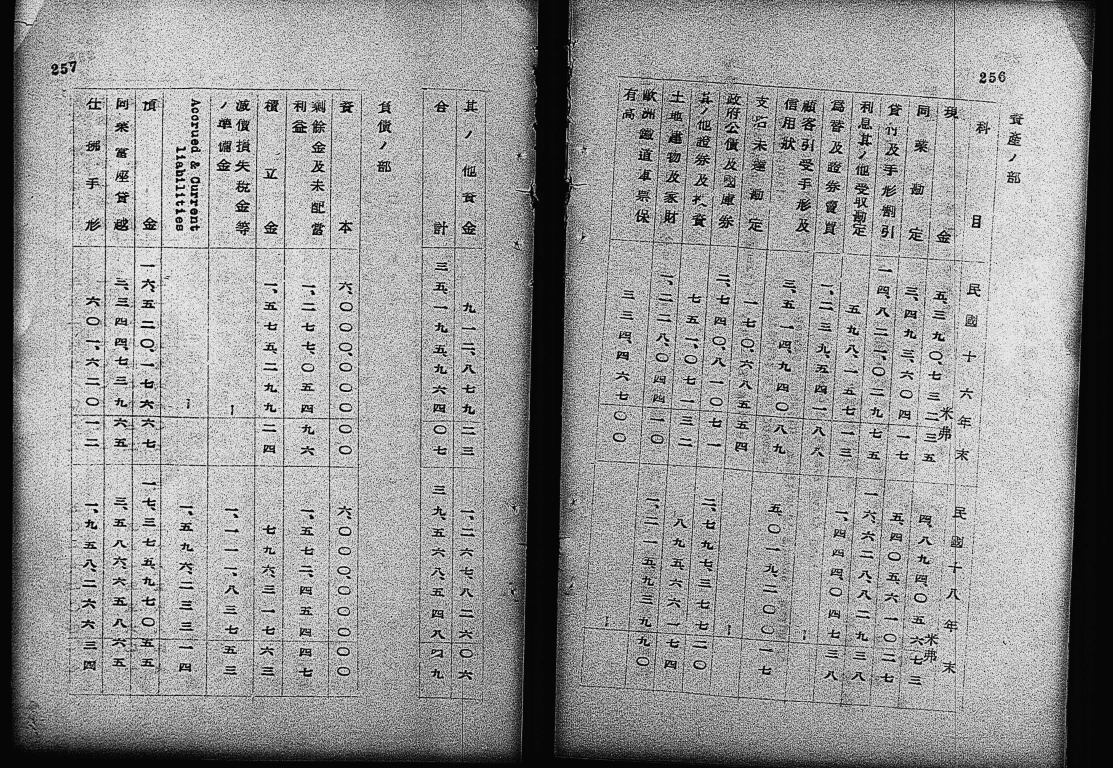 256
資產ノ部
科目 民國十六年末 米弗 民國十八年末 米弗
現金 五、三九〇、七三二 三五 四、八九四、〇五六 七三
同業勘定 三、四九三、六〇四 一七 五、四〇五、六一〇 二七
貸付及手形割引 一四、八二二、〇二九 七五 一六、六二八、八二九 三八
利息其ノ他受取勘定 五九八、一五七 一三 一、四四四、〇四七 三八
爲替及證券賣買 一、二三九、五四一 八八
顧客引受手形及信用狀 三、五一四、九四〇 八九 五、〇一九、二〇〇 一七
支店未達勘定 一七〇、六八五 五四
政府公債及國庫券 二、七四〇、八一〇 七一 二、七九七、三七七 二〇
其ノ他證券及投資 七五一、〇七一 三二 八九五、六六一 七四
土地建物及家財 一、二二八、〇四四 二〇 一、二一五、九三九 九〇
歐洲鐵道車票保有高 三三四、四六七 〇〇
257
其ノ他資金 九一二、八七九 二三 一、二六七、八二六 〇六
合計 三五、一九五、九六四 〇七 三九、五六八、五四八 九
負債ノ部
資本 六、〇〇〇、〇〇〇 〇〇 六、〇〇〇、〇〇〇 〇〇
剩餘金及未配當利益 一、二七七、〇五四 九六 一、五七二、四五四 四七
積立金 一、五七五、二九九 二四 七九六、三一七 六三
減價損失稅金等ノ準備金 一、一一一、八三七 五三
Accrued & Current liabilities 一、五九六、二三三 一四
預金 一六、五二〇、一七六 六七 一七、三七五、九七〇 五五
同業當座貸越 三、三四四、七三九 六五 三、五八六、六五八 六五
仕拂手形 六〇一、六二〇 一二 一、九五八、二六六 三四